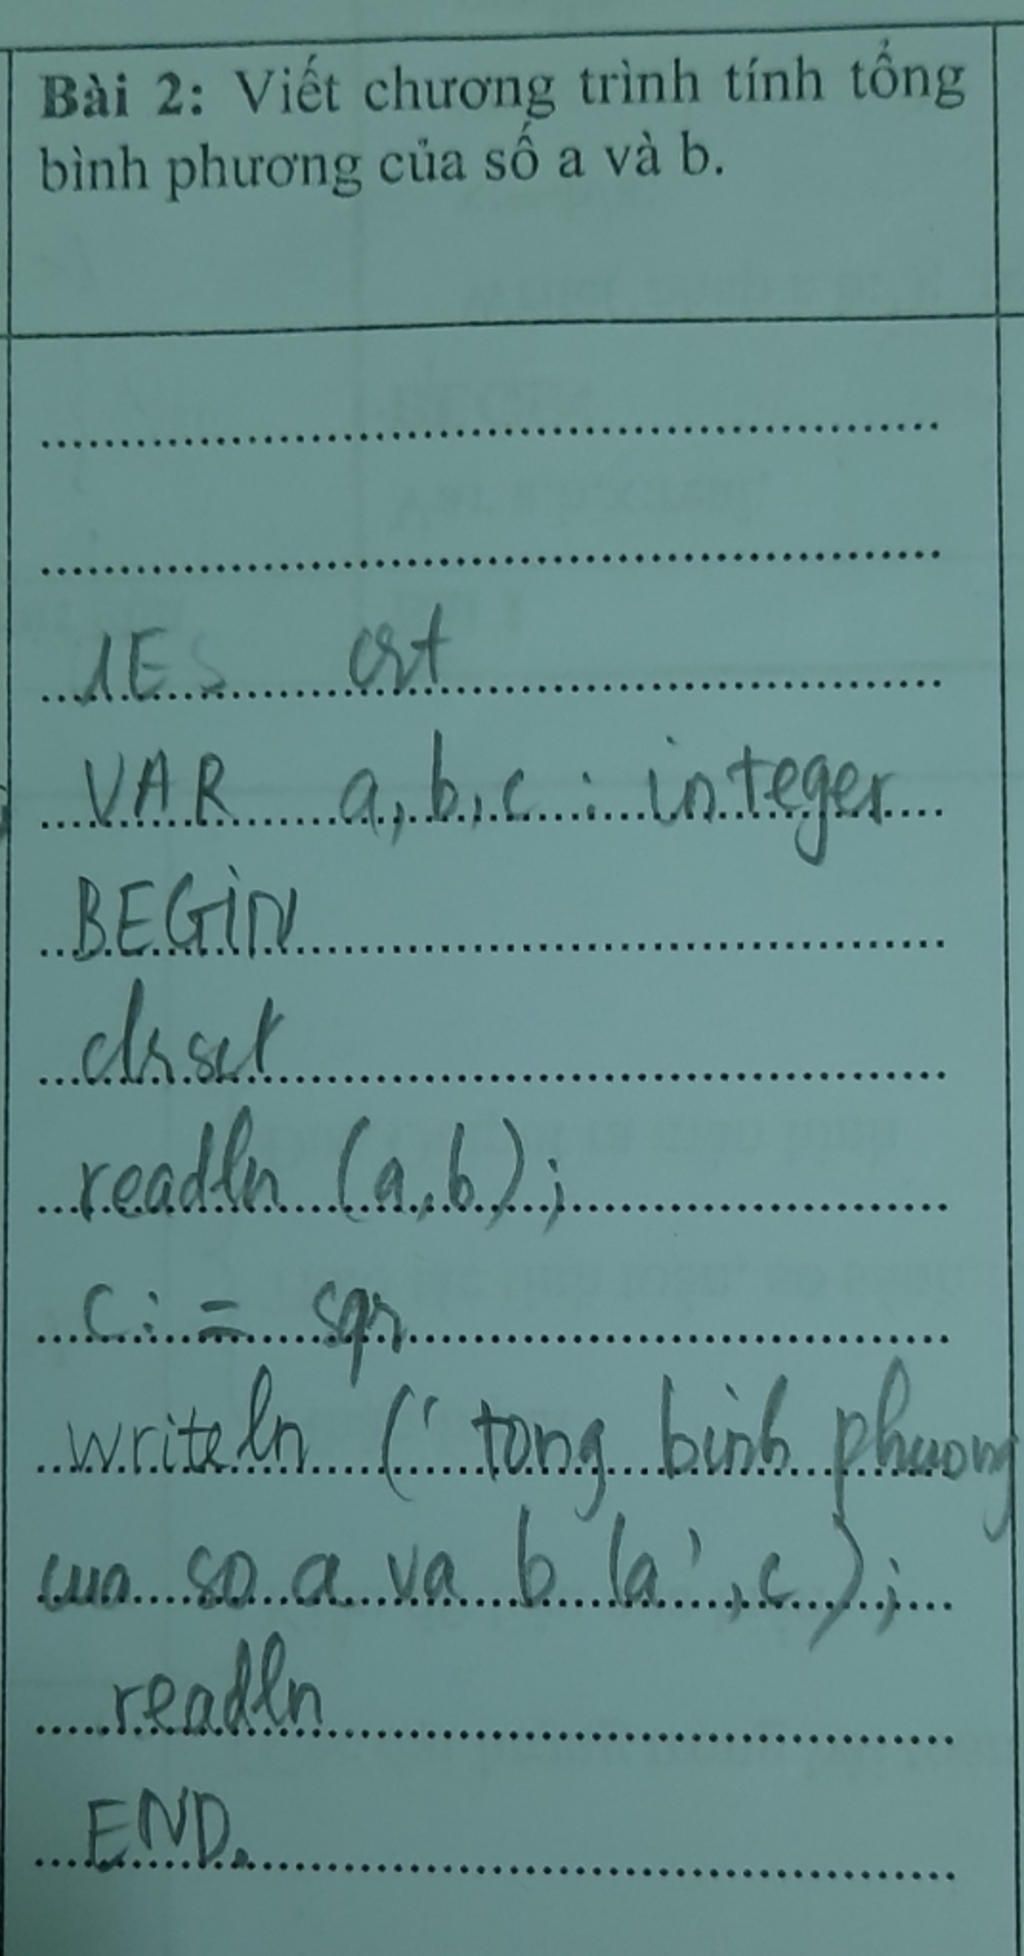 Bài 2: Viết chương trình tính tổng
bình phương của số a và b.
UES crt
VAR a, b, c : integer
BEGiN
clrscr
readln (a,b);
c := sqr
writeln (' tong binh phuong
cua so a va b la ', c );
readln
END.